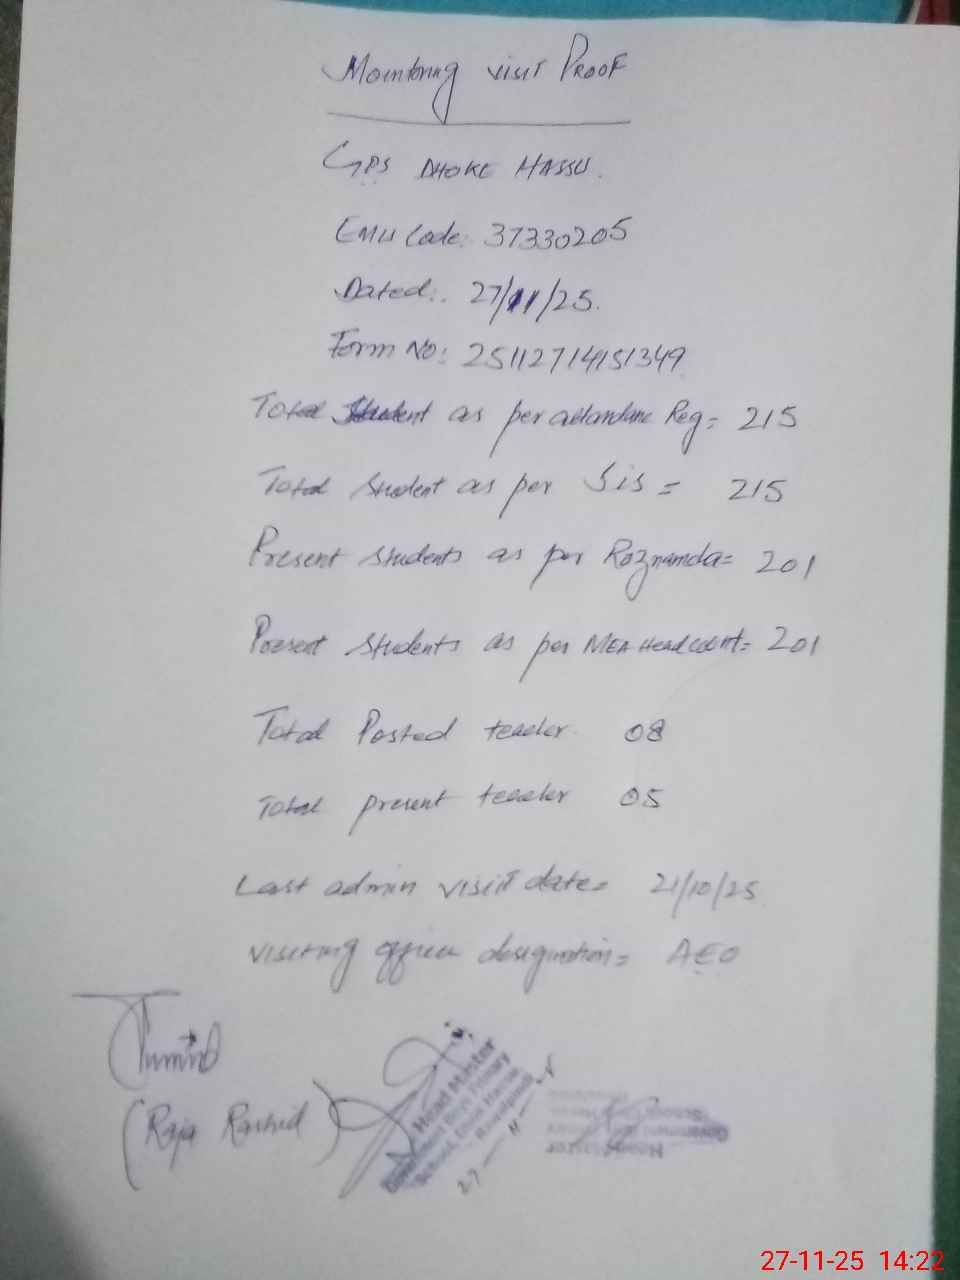 Monitoring visit PROOF
GPS DHOKE HASSU.
EMIS Code: 37330205
Dated:. 27/11/25.
Form No: 25112714151349
Total Student as per attandanc Reg = 215
Total student as per Sis = 215
Present students as per Roznamcha = 201
Present students as per MEA Head count = 201
Total Posted teacher 08
Total present teacher 05
Last admin visit date = 21/10/25
visiting officer designation = AEO
(Raja Rashid)
Head Master
Government Boys Primary
School, Dhoke Hassu
Rawalpindi
27-11-
27-11-25 14:22